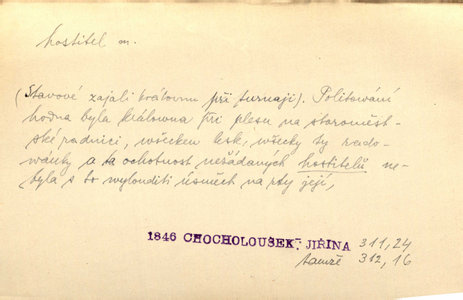 hostitel m.
(Stavové zajali královnu při turnaji). Politování
hodna byla královna při plesu na staroměst-
ské radnici, wšecken lesk, wšecky ty rado-
wánky a ta ochotnost nežádaných hostitelů ne-
byla s to wylouditi úsměch na rty její,
1846 CHOCHOLOUŠEK: JIŘINA 311,24
tamže 312,16